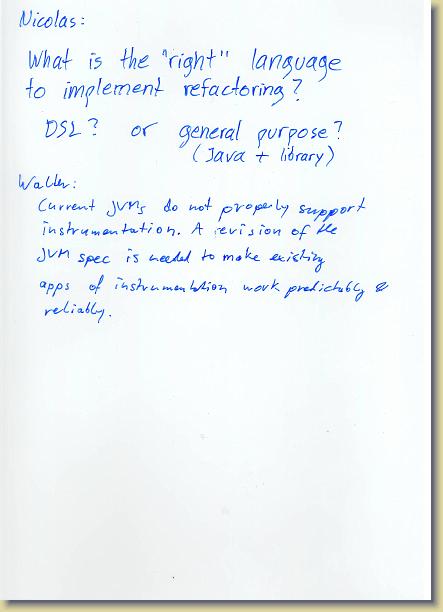 Nicolas:
What is the "right" language
to implement refactoring?
DSL? or general purpose?
(Java + library)
Walter:
Current JVMs do not properly support
instrumentation. A revision of the
JVM spec is needed to make existing
apps of instrumentation work predictably &
reliably.